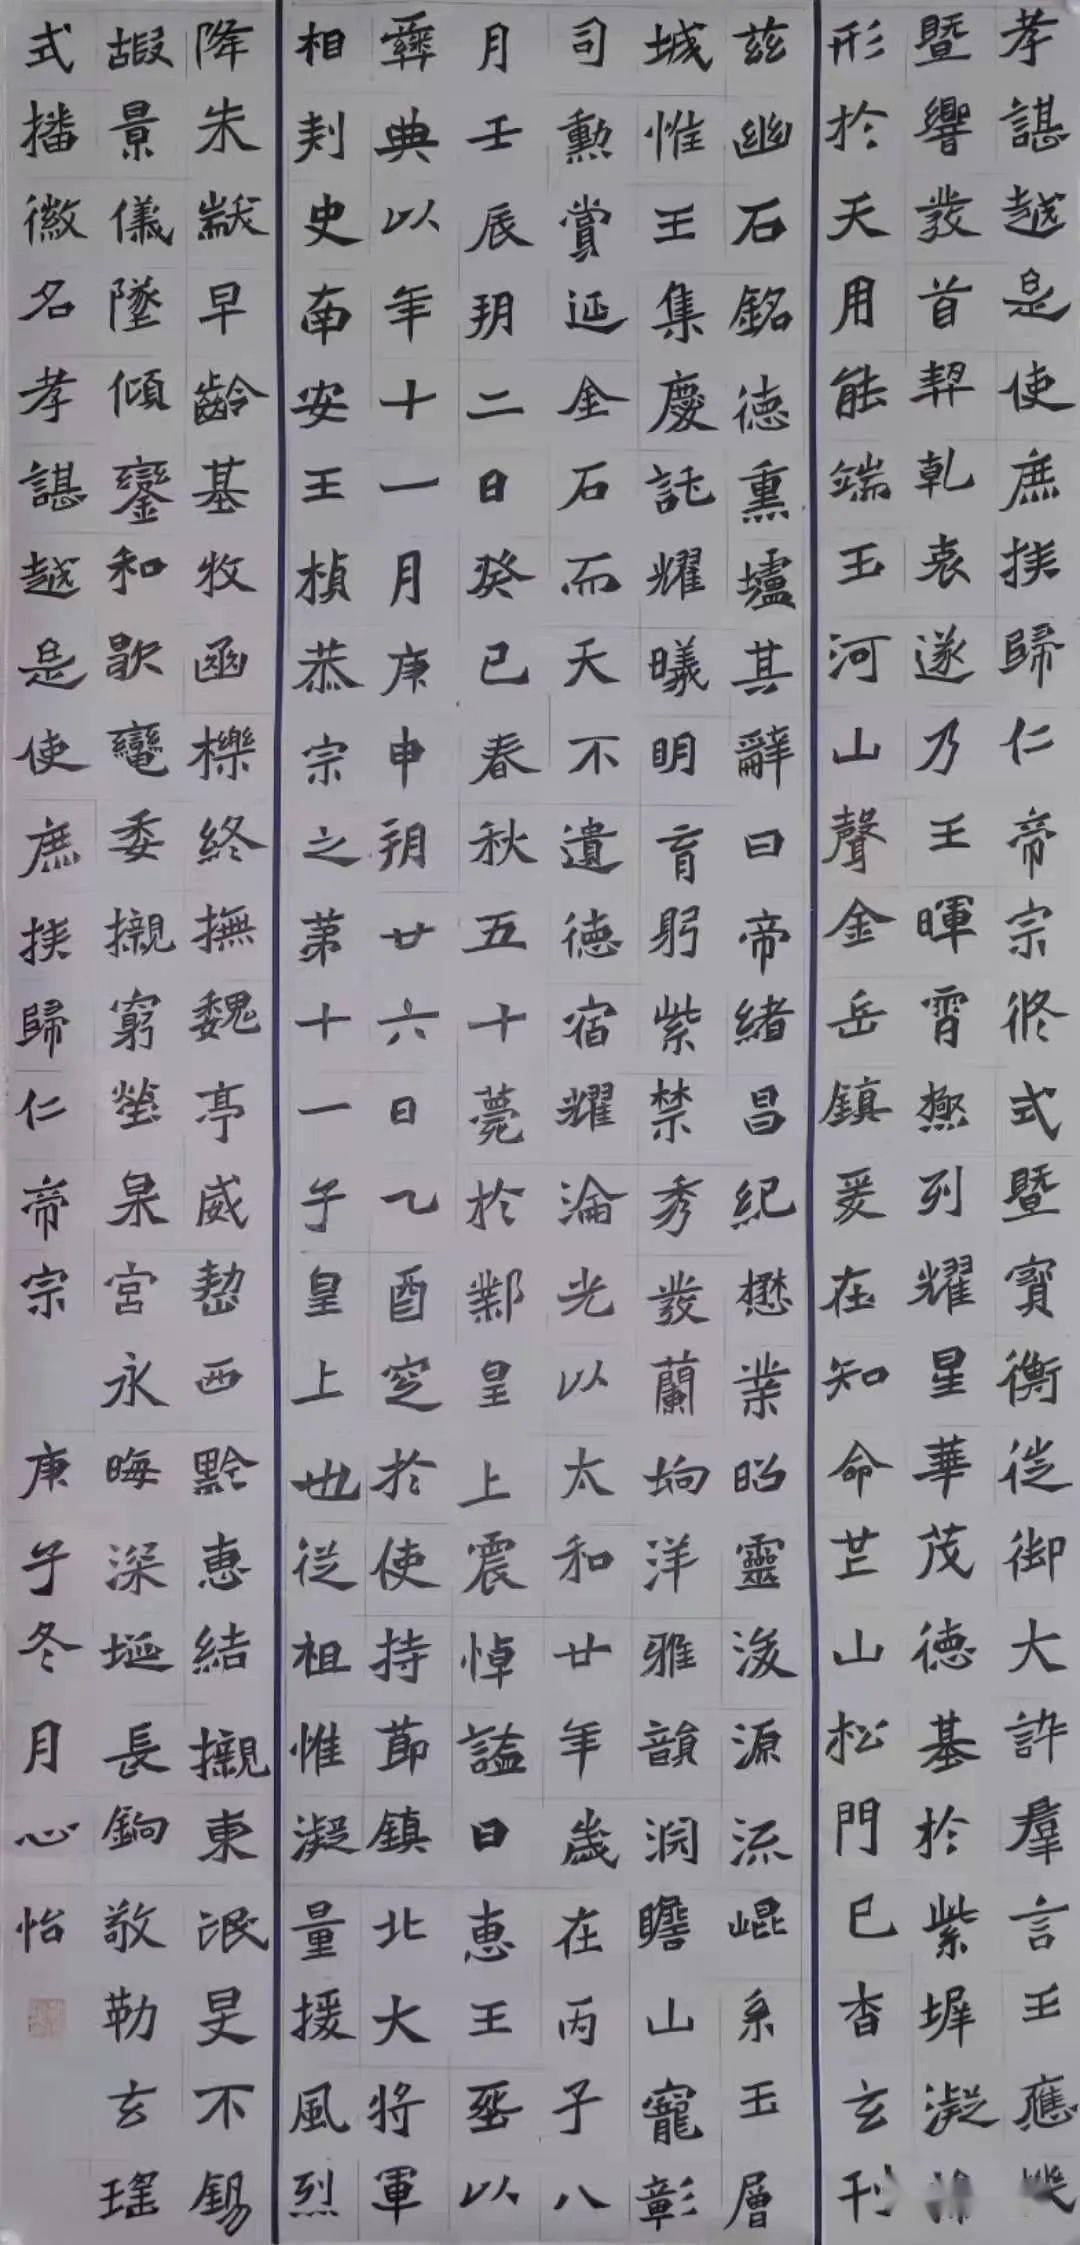 孝諶越是使庶族歸仁帝宗條式暨寳衡從御大許羣言王應
暨響發首挈乾表遂乃王暉霄極列耀星華茂德基於紫墀凝
形於天用能端玉河山聲金岳鎮爰在知命芒山松門已杳玄刊
茲幽石銘德熏壚其辭曰帝緒昌紀懋業昭靈浚源流崐系玉層
城惟王集慶託耀曦明育躬紫禁秀發蘭坰洋雅韻洞瞻山寵彰
司勲賞延金石而天不遺德宿耀淪光以太和廿年歲在丙子八
月壬辰朔二日癸巳春秋五十薨於鄴皇上震悼謚曰惠王
彝典以年十一月庚申朔廿六日乙酉窆於使持節鎮北大將軍
相刾史南安王楨恭宗之第十一子皇上也從祖惟凝量援風烈
降朱黻早齡基牧函櫟終撫魏亭威慹西黔惠結櫬東氓旻不錫
嘏景儀墜傾鑾和歇䡵委櫬窮塋泉宮永晦深埏長鉰敬勒玄瑤
式播徽名孝諶越是使庶族歸仁帝宗 庚子冬月心怡